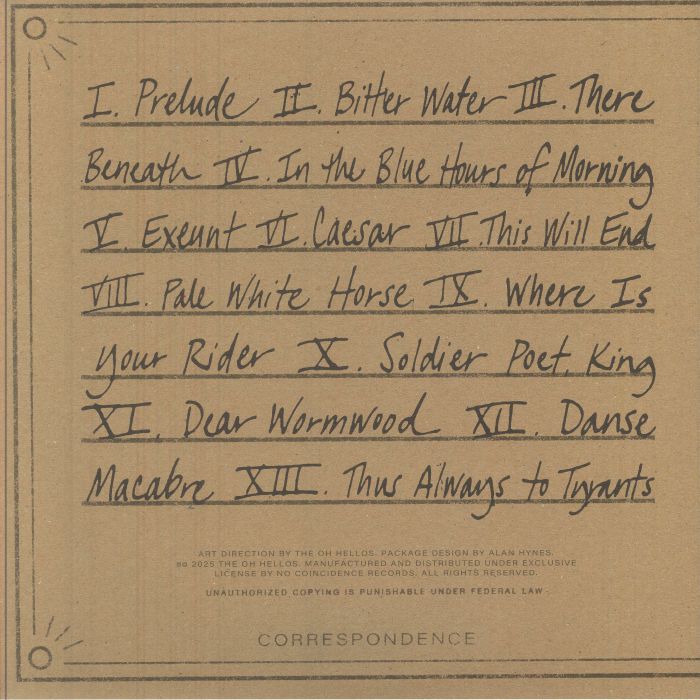 I. Prelude II. Bitter Water III. There
Beneath IV. In the Blue Hours of Morning
V. Exeunt VI. Caesar VII. This Will End
VIII. Pale White Horse IX. Where Is
your Rider X. Soldier Poet, King
XI. Dear Wormwood XII. Danse
Macabre XIII. Thus Always to Tyrants
ART DIRECTION BY THE OH HELLOS. PACKAGE DESIGN BY ALAN HYNES.
2025 THE OH HELLOS. MANUFACTURED AND DISTRIBUTED UNDER EXCLUSIVE
LICENSE BY NO COINCIDENCE RECORDS. ALL RIGHTS RESERVED.
UNAUTHORIZED COPYING IS PUNISHABLE UNDER FEDERAL LAW.
CORRESPONDENCE